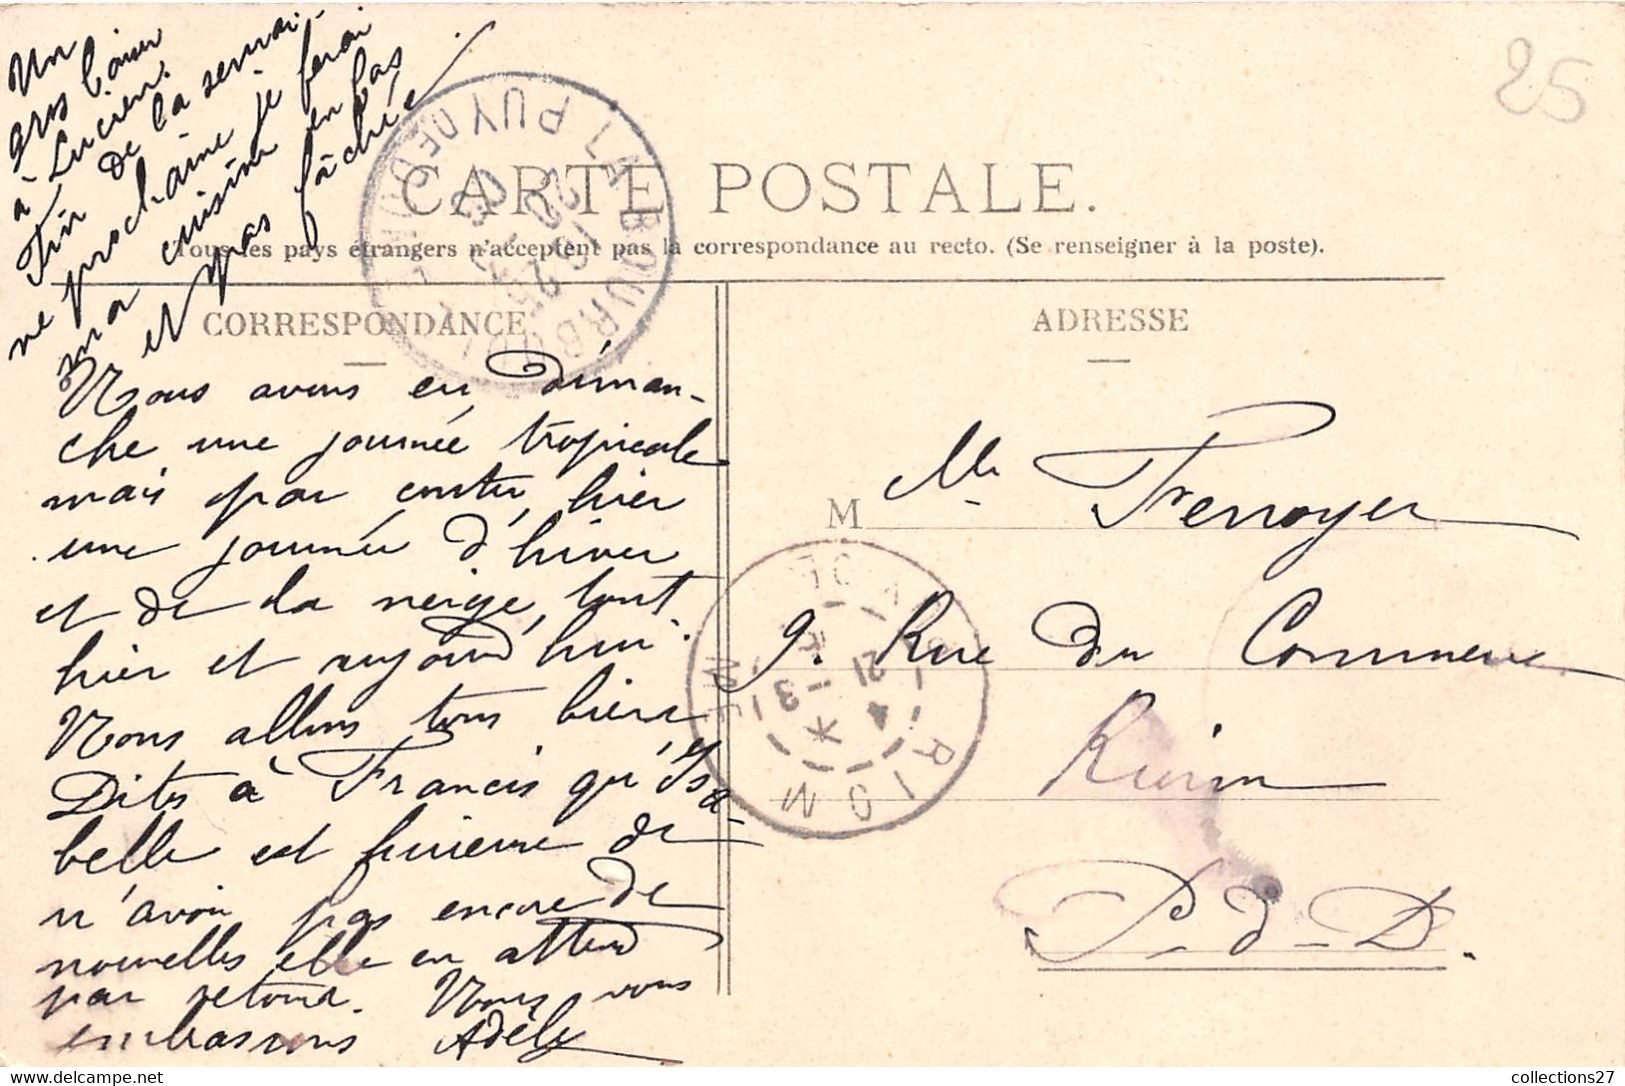 Un
gros baiser
à Lucien.
Fin de la semai-
ne prochaine je ferai
ma cuisine en bas
et pas fâchée
25
LA BOURBOULE
PUY DE DOME
CARTE POSTALE.
Tous les pays étrangers n'acceptent pas la correspondance au recto. (Se renseigner à la poste).
CORRESPONDANCE
Nous avons eu diman-
che une journée tropicale
mais par contre, hier
une journée d'hiver
et de la neige, tout
hier et aujourd'hui.
Nous allons tous bien.
Dites à Francis qu'Isa-
belle est furieuse de
n'avoir pas encore de
nouvelles elle en attend
par retour. Nous vous
embrassons Adèle
ADRESSE
M
Mle
9. Rue du Commerce
Riom
P-d-D.
RIOM
21
4
collections27